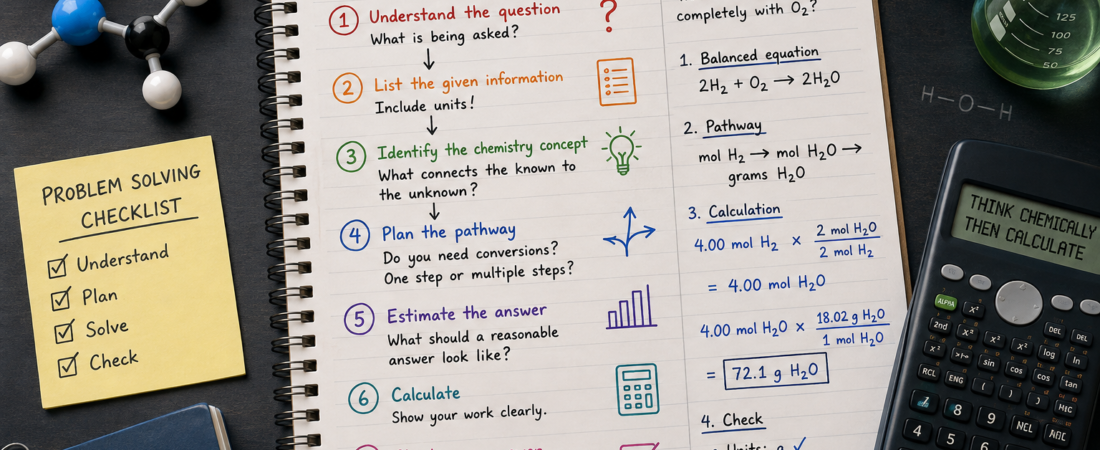 PROBLEM SOLVING
CHECKLIST
Understand
Plan
Solve
Check
1 Understand the question
What is being asked?
?
2 List the given information
Include units!
3 Identify the chemistry concept
What connects the known to
the unknown?
4 Plan the pathway
Do you need conversions?
One step or multiple steps?
5 Estimate the answer
What should a reasonable
answer look like?
6 Calculate
Show your work clearly.
completely with O₂?
1. Balanced equation
2H₂ + O₂ → 2H₂O
2. Pathway
mol H₂ → mol H₂O →
grams H₂O
3. Calculation
4.00 mol H₂ × 2 mol H₂O
2 mol H₂
= 4.00 mol H₂O
4.00 mol H₂O × 18.02 g H₂O
1 mol H₂O
= 72.1 g H₂O
4. Check
Units: g ✓
125
100
75
50
H–O–H
THINK CHEMICALLY
THEN CALCULATE
ALPHA x²
2nd x² x² x² DEL DEL
sin cos log ln
RCL ENG ( ) cos tan
7 8 9 NCL
4 5 6